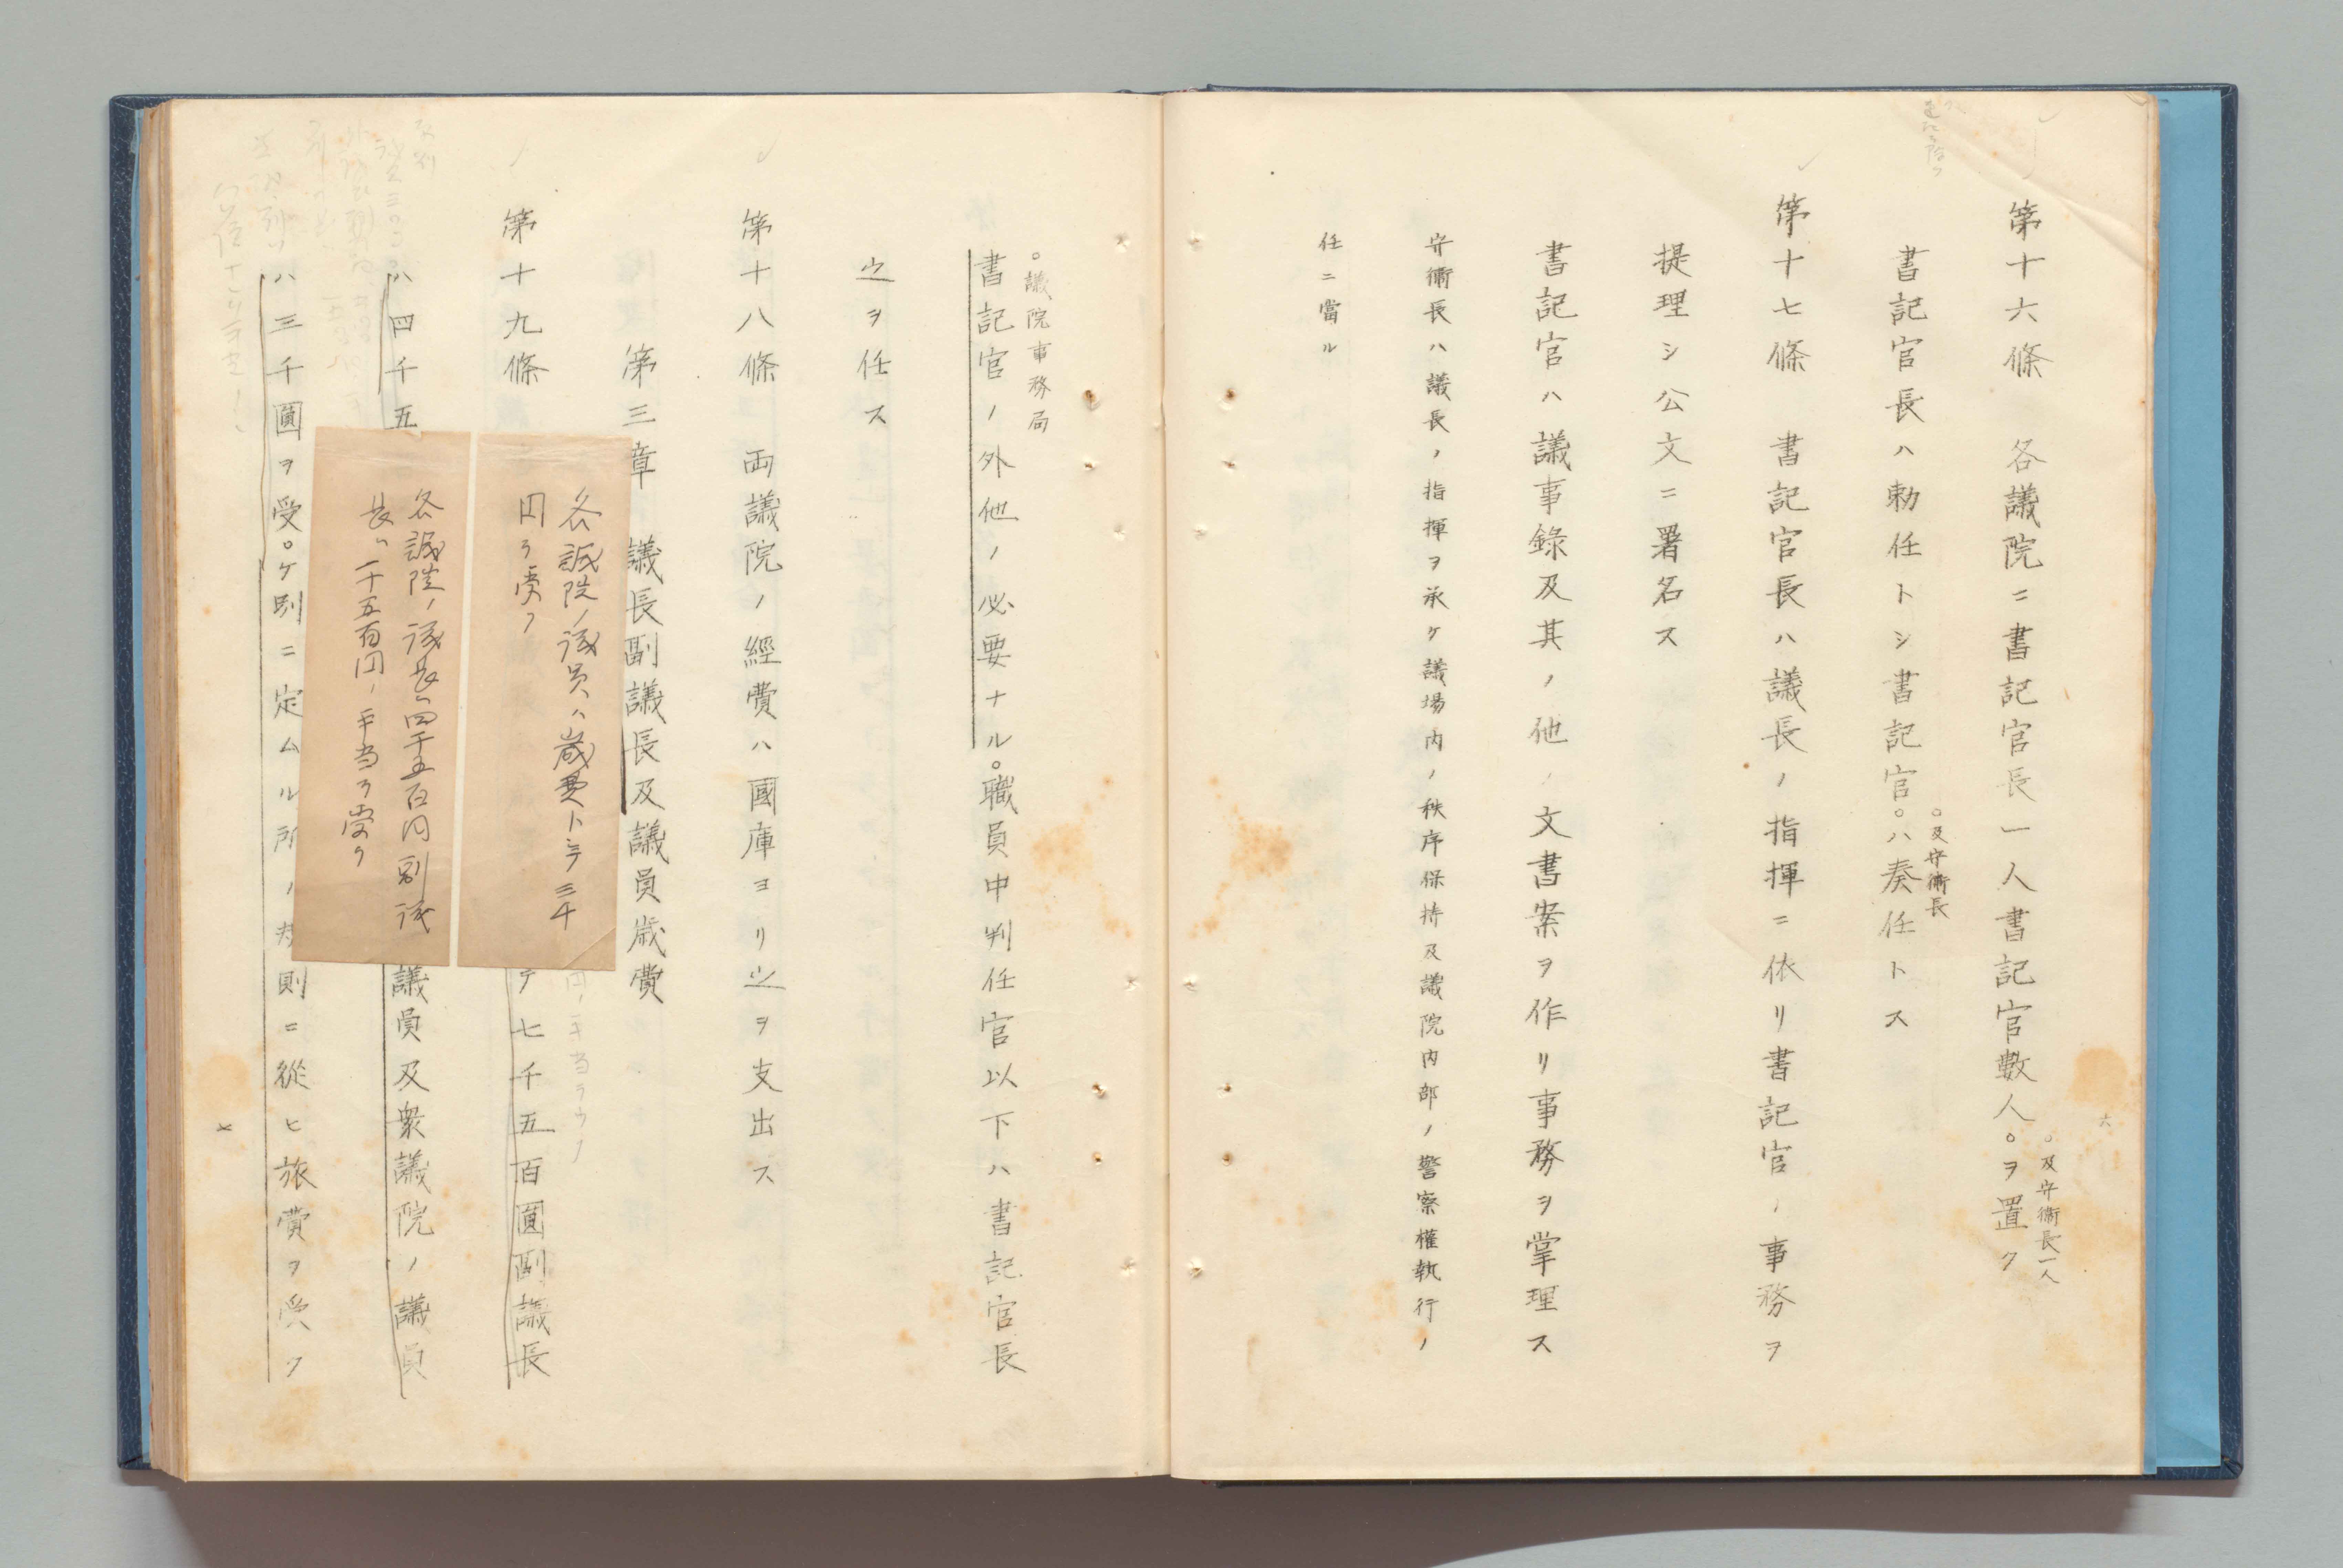 第十六條　各議院ニ書記官長一人書記官數人。ヲ置ク
。及守衞長一人
書記官長ハ勅任トシ書記官。ハ奏任トス
。及守衞長
第十七條　書記官長ハ議長ノ指揮ニ依リ書記官ノ事務ヲ
提理シ公文ニ署名ス
書記官ハ議事錄及其ノ他ノ文書案ヲ作リ事務ヲ掌理ス
守衞長ハ議長ノ指揮ヲ承ケ議場内ノ秩序保持及議院内部ノ警察權執行ノ
任ニ當ル
六
。議院事務局
書記官ノ外他ノ必要ナル。職員中判任官以下ハ書記官長
之ヲ任ス
第十八條　両議院ノ經費ハ國庫ヨリ之ヲ支出ス
第三章　議長副議長及議員歳費
各議院ノ議員ハ歳費トシテ三千
円ヲ受ク
第十九條
テ七千五百圓副議長
円ノ手当ヲウク
各議院ノ議長ハ四千五百円副議
長ハ二千五百円ノ手当ヲ受ク
ハ四千五
議員及衆議院ノ議員
ハ三千圓ヲ受。ケ別ニ定ムル所ノ規則ニ從ヒ旅費ヲ受ク
七